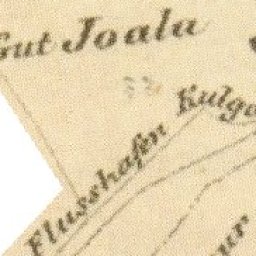 Gut Joala
Kulga
Flusshafen
ur